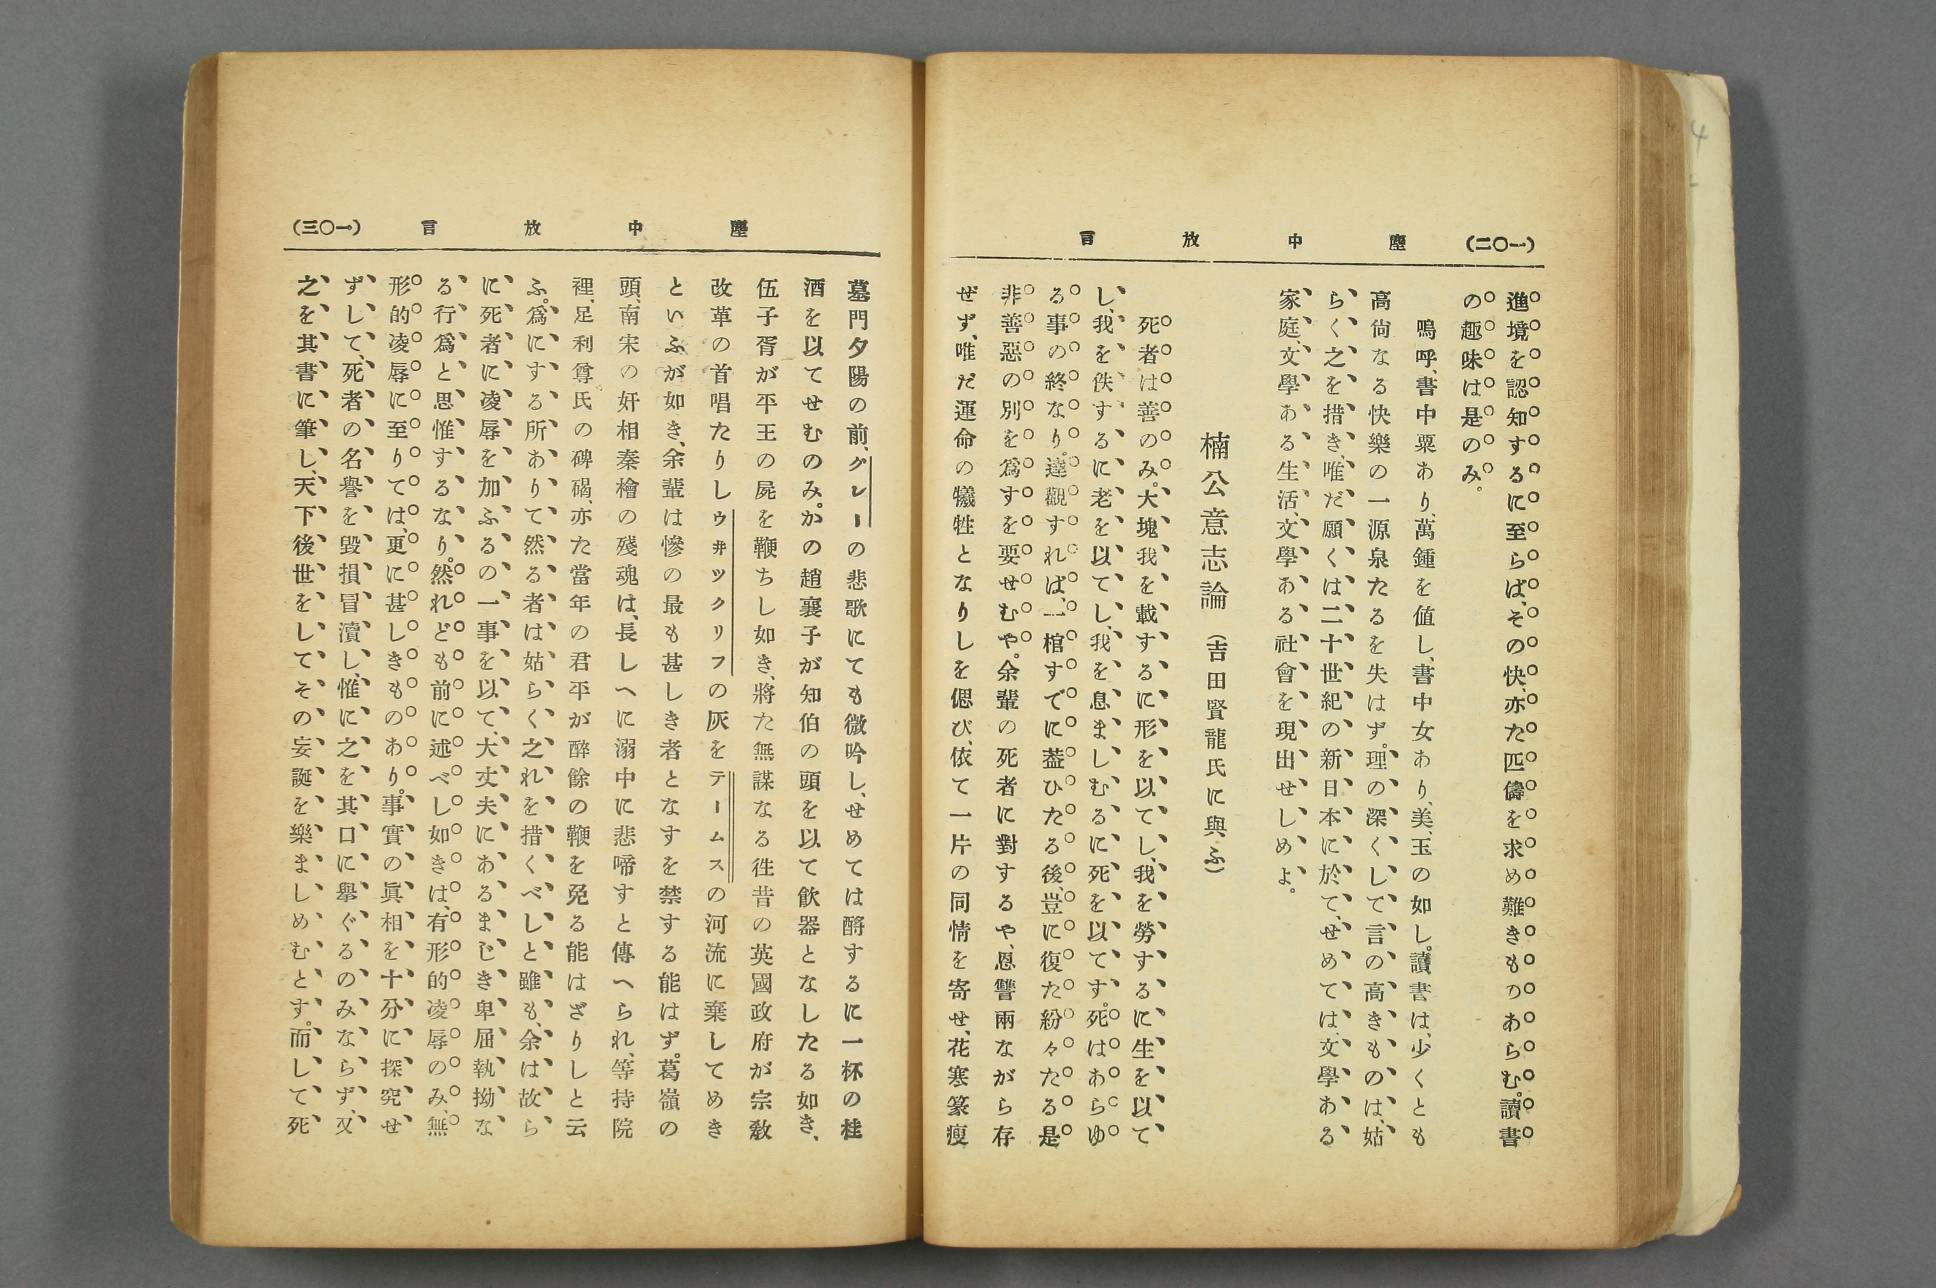 (一〇二)　塵中放言
進境を認知するに至らば、その快、亦た匹儔を求め難きものあらむ。讀書
の趣味は是のみ。
嗚呼、書中粟あり、萬鍾を値し、書中女あり、美、玉の如し。讀書は、少くとも
高尚なる快樂の一源泉たるを失はず。理の深くして言の高きものは、姑
らく之を措き、唯だ願くは二十世紀の新日本に於て、せめては、文學ある
家庭、文學ある生活、文學ある社會を現出せしめよ。
楠公意志論（吉田賢龍氏に與ふ）
死者は善のみ。大塊我を載するに形を以てし、我を勞するに生を以て
し、我を佚するに老を以てし、我を息ましむるに死を以てす。死はあらゆ
る事の終なり。達觀すれば、一棺すでに蓋ひたる後、豈に復た紛々たる是
非善惡の別を爲すを要せむや。余輩の死者に對するや、恩讐兩ながら存
せず、唯だ運命の犧牲となりしを偲び、依て一片の同情を寄せ、花寒篆瘦
塵中放言　(一〇三)
墓門夕陽の前、グレーの悲歌にても微吟し、せめては酹するに一杯の桂
酒を以てせむのみ。かの趙襄子が知伯の頭を以て飮器となしたる如き、
伍子胥が平王の屍を鞭ちし如き、將た無謀なる徃昔の英國政府が宗敎
改革の首唱たりしウ井ツクリフの灰をテームスの河流に棄してめき
といふが如き、余輩は慘の最も甚しき者となすを禁ずる能はず。葛嶺の
頭、南宋の奸相秦檜の殘魂は、長しへに溺中に悲啼すと傳へられ、等持院
裡、足利尊氏の碑碣、亦た當年の君平が醉餘の鞭を免る能はざりしと云
ふ。爲にする所ありて然る者は姑らく之れを措くべしと雖も、余は故ら
に死者に凌辱を加ふるの一事を以て、大丈夫にあるまじき卑屈執拗な
る行爲と思惟するなり。然れども前に述べし如きは、有形的凌辱のみ、無
形的凌辱に至りては、更に甚しきものあり。事實の眞相を十分に探究せ
ずして、死者の名譽を毀損冒瀆し、惟に之を其口に擧ぐるのみならず、又
之を其書に筆し、天下後世をしてその妄誕を樂ましめむとす。而して死